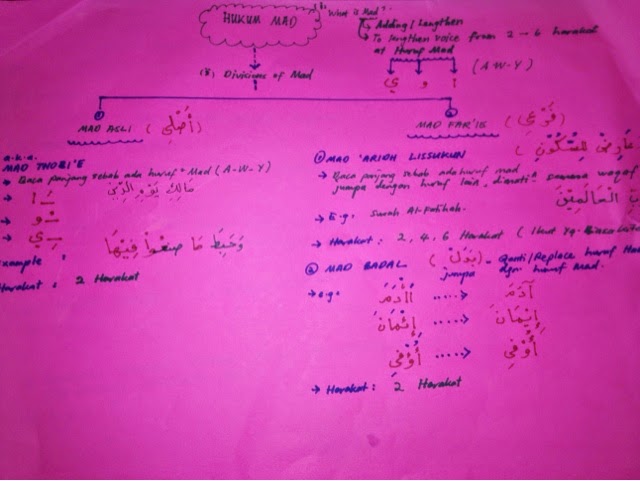 HUKUM MAD
What is Mad?
Adding / Lengthen
To lengthen voice from 2 → 6 harakat
at Huruf Mad
ا و ي (A-W-Y)
Divisions of Mad
①
MAD ASLI (أَصْلِي)
a.k.a.
MAD THOBI'E
→ Baca panjang sebab ada huruf Mad (A-W-Y)
مَالِكِ يَوْمِ الدِّيْنِ
→ ـَا
→ ـُو
→ ـِي
Example :
وَحَبِطَ مَا صَنَعُوا فِيْهَا
Harakat : 2 Harakat
②
MAD FAR'IE (فَرْعِي)
① MAD 'ARIDH LISSUKUN (عَارِضْ لِلسُّكُوْنِ)
→ Baca panjang sebab ada huruf mad
jumpa dengan huruf lain, dimati² semasa waqaf
الْعَالَمِيْنَ
→ E.g: Surah Al-Fatihah.
→ Harakat : 2, 4, 6 Harakat (Ikut
② MAD BADAL (بَدَلْ) - Ganti/Replace huruf
jumpa dgn huruf mad.
→ e.g: أَأْدَمَ ……→ آدَمَ
إِئْمَانَ ……→ إِيْمَانَ
أُؤْفِيَ ……→ أُوْفِيَ
→ Harakat : 2 Harakat